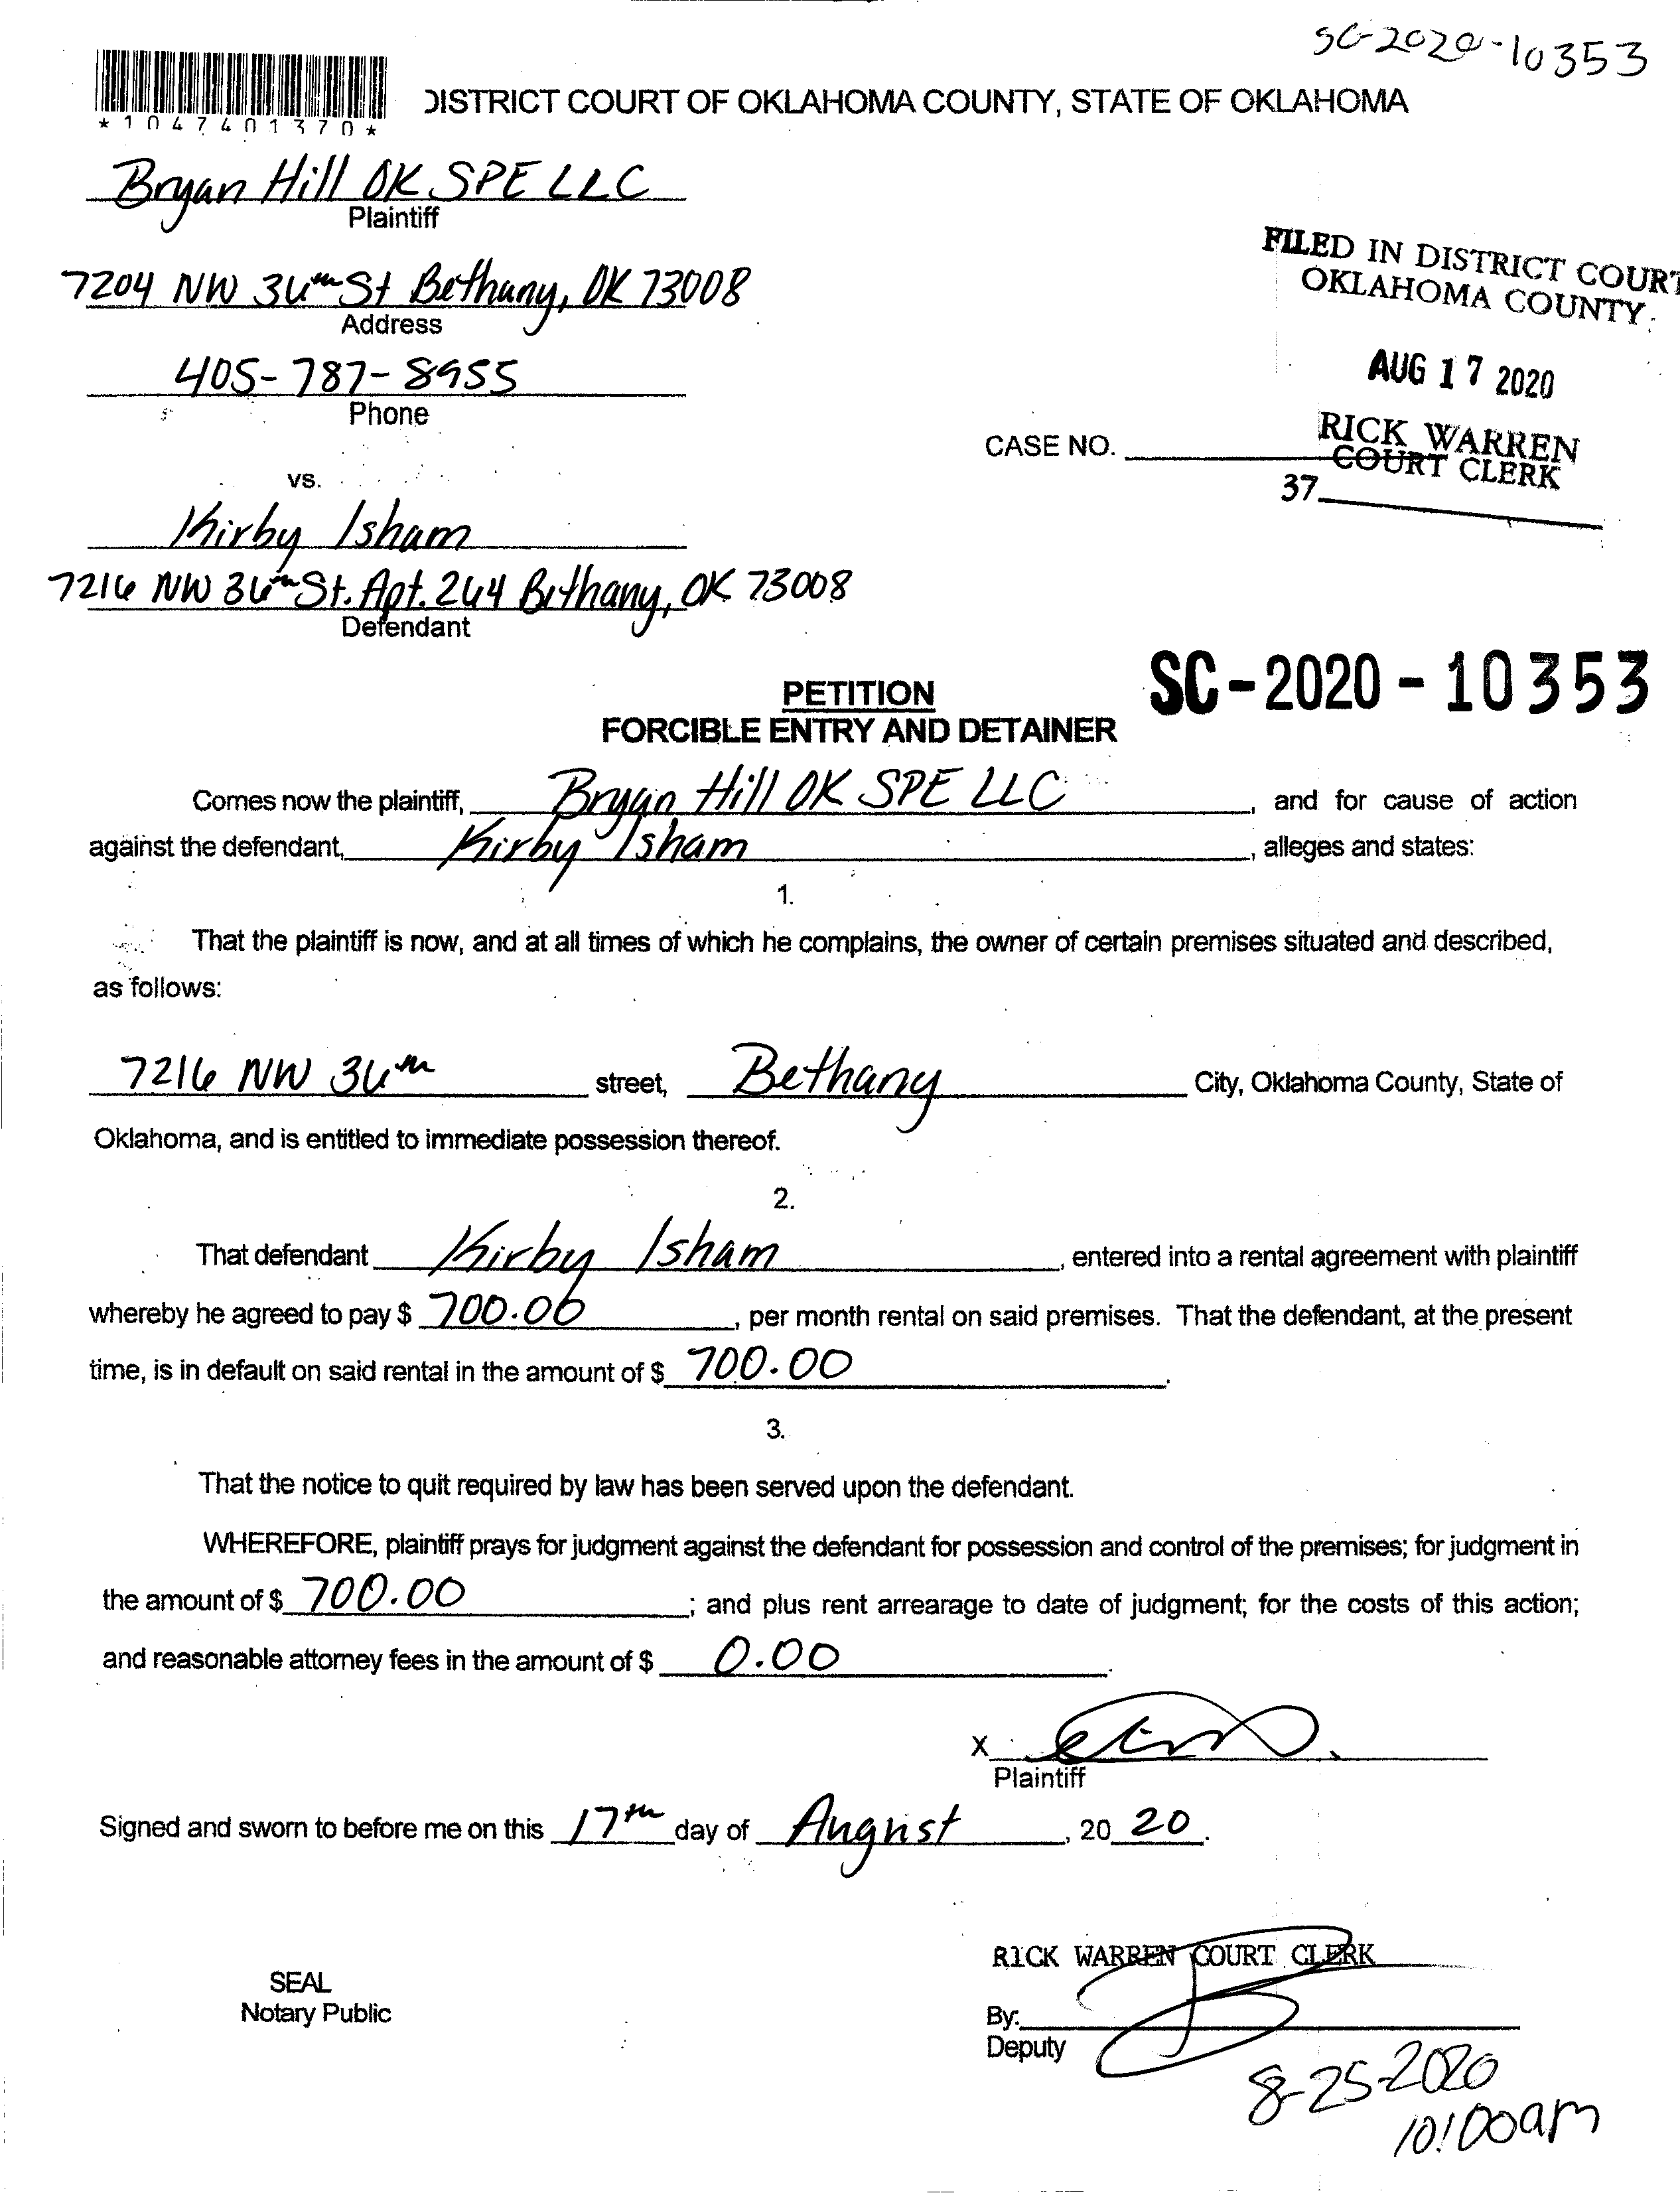 SC-2020-10353
*1047401370*
DISTRICT COURT OF OKLAHOMA COUNTY, STATE OF OKLAHOMA
Bryan Hill OK SPE LLC
Plaintiff
7204 NW 36th St Bethany, OK 73008
Address
405-787-8955
Phone
FILED IN DISTRICT COURT
OKLAHOMA COUNTY
AUG 17 2020
RICK WARREN
COURT CLERK
37
CASE NO.
vs.
Kirby Isham
7216 NW 36th St. Apt. 264 Bethany, OK 73008
Defendant
SC-2020-10353
PETITION
FORCIBLE ENTRY AND DETAINER
Comes now the plaintiff, Bryan Hill OK SPE LLC, and for cause of action
against the defendant, Kirby Isham, alleges and states:
1.
That the plaintiff is now, and at all times of which he complains, the owner of certain premises situated and described,
as follows:
7216 NW 36th street, Bethany City, Oklahoma County, State of
Oklahoma, and is entitled to immediate possession thereof.
2.
That defendant Kirby Isham, entered into a rental agreement with plaintiff
whereby he agreed to pay $ 700.00, per month rental on said premises. That the defendant, at the present
time, is in default on said rental in the amount of $ 700.00.
3.
That the notice to quit required by law has been served upon the defendant.
WHEREFORE, plaintiff prays for judgment against the defendant for possession and control of the premises; for judgment in
the amount of $ 700.00; and plus rent arrearage to date of judgment; for the costs of this action;
and reasonable attorney fees in the amount of $ 0.00.
X
Plaintiff
Signed and sworn to before me on this 17th day of August, 2020.
RICK WARREN COURT CLERK
SEAL
Notary Public
By:
Deputy
8-25-2020
10:00am